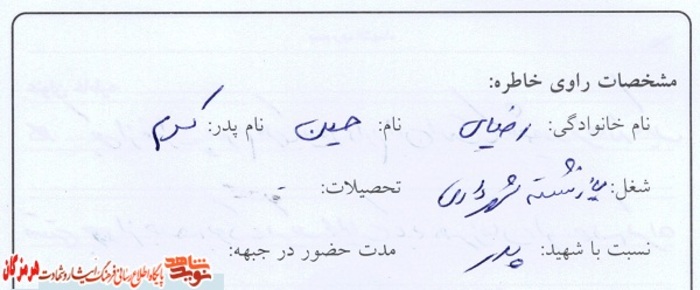 مشخصات راوی خاطره:
نام خانوادگی: رضایی نام: حسین نام پدر: کرم
شغل: بازنشسته شهرداری تحصیلات: -
نسبت با شهید: پدر مدت حضور در جبهه:
نوید شاهد پایگاه اطلاع رسانی فرهنگ ایثار و شهادت هرمزگان